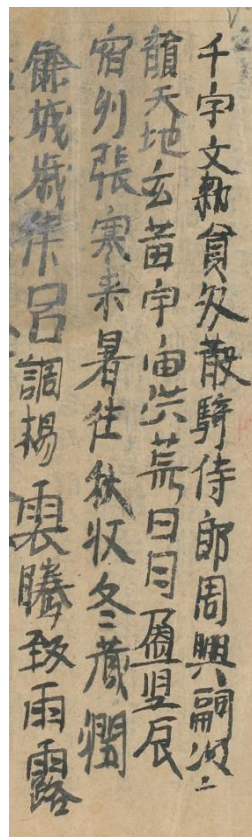 千字文勑員外散騎侍郎周興嗣次
韻天地玄黄宇宙洪荒日月盈昃辰
宿列張寒来暑往秋收冬藏潤
餘城歲律呂調楊雲騰致雨露